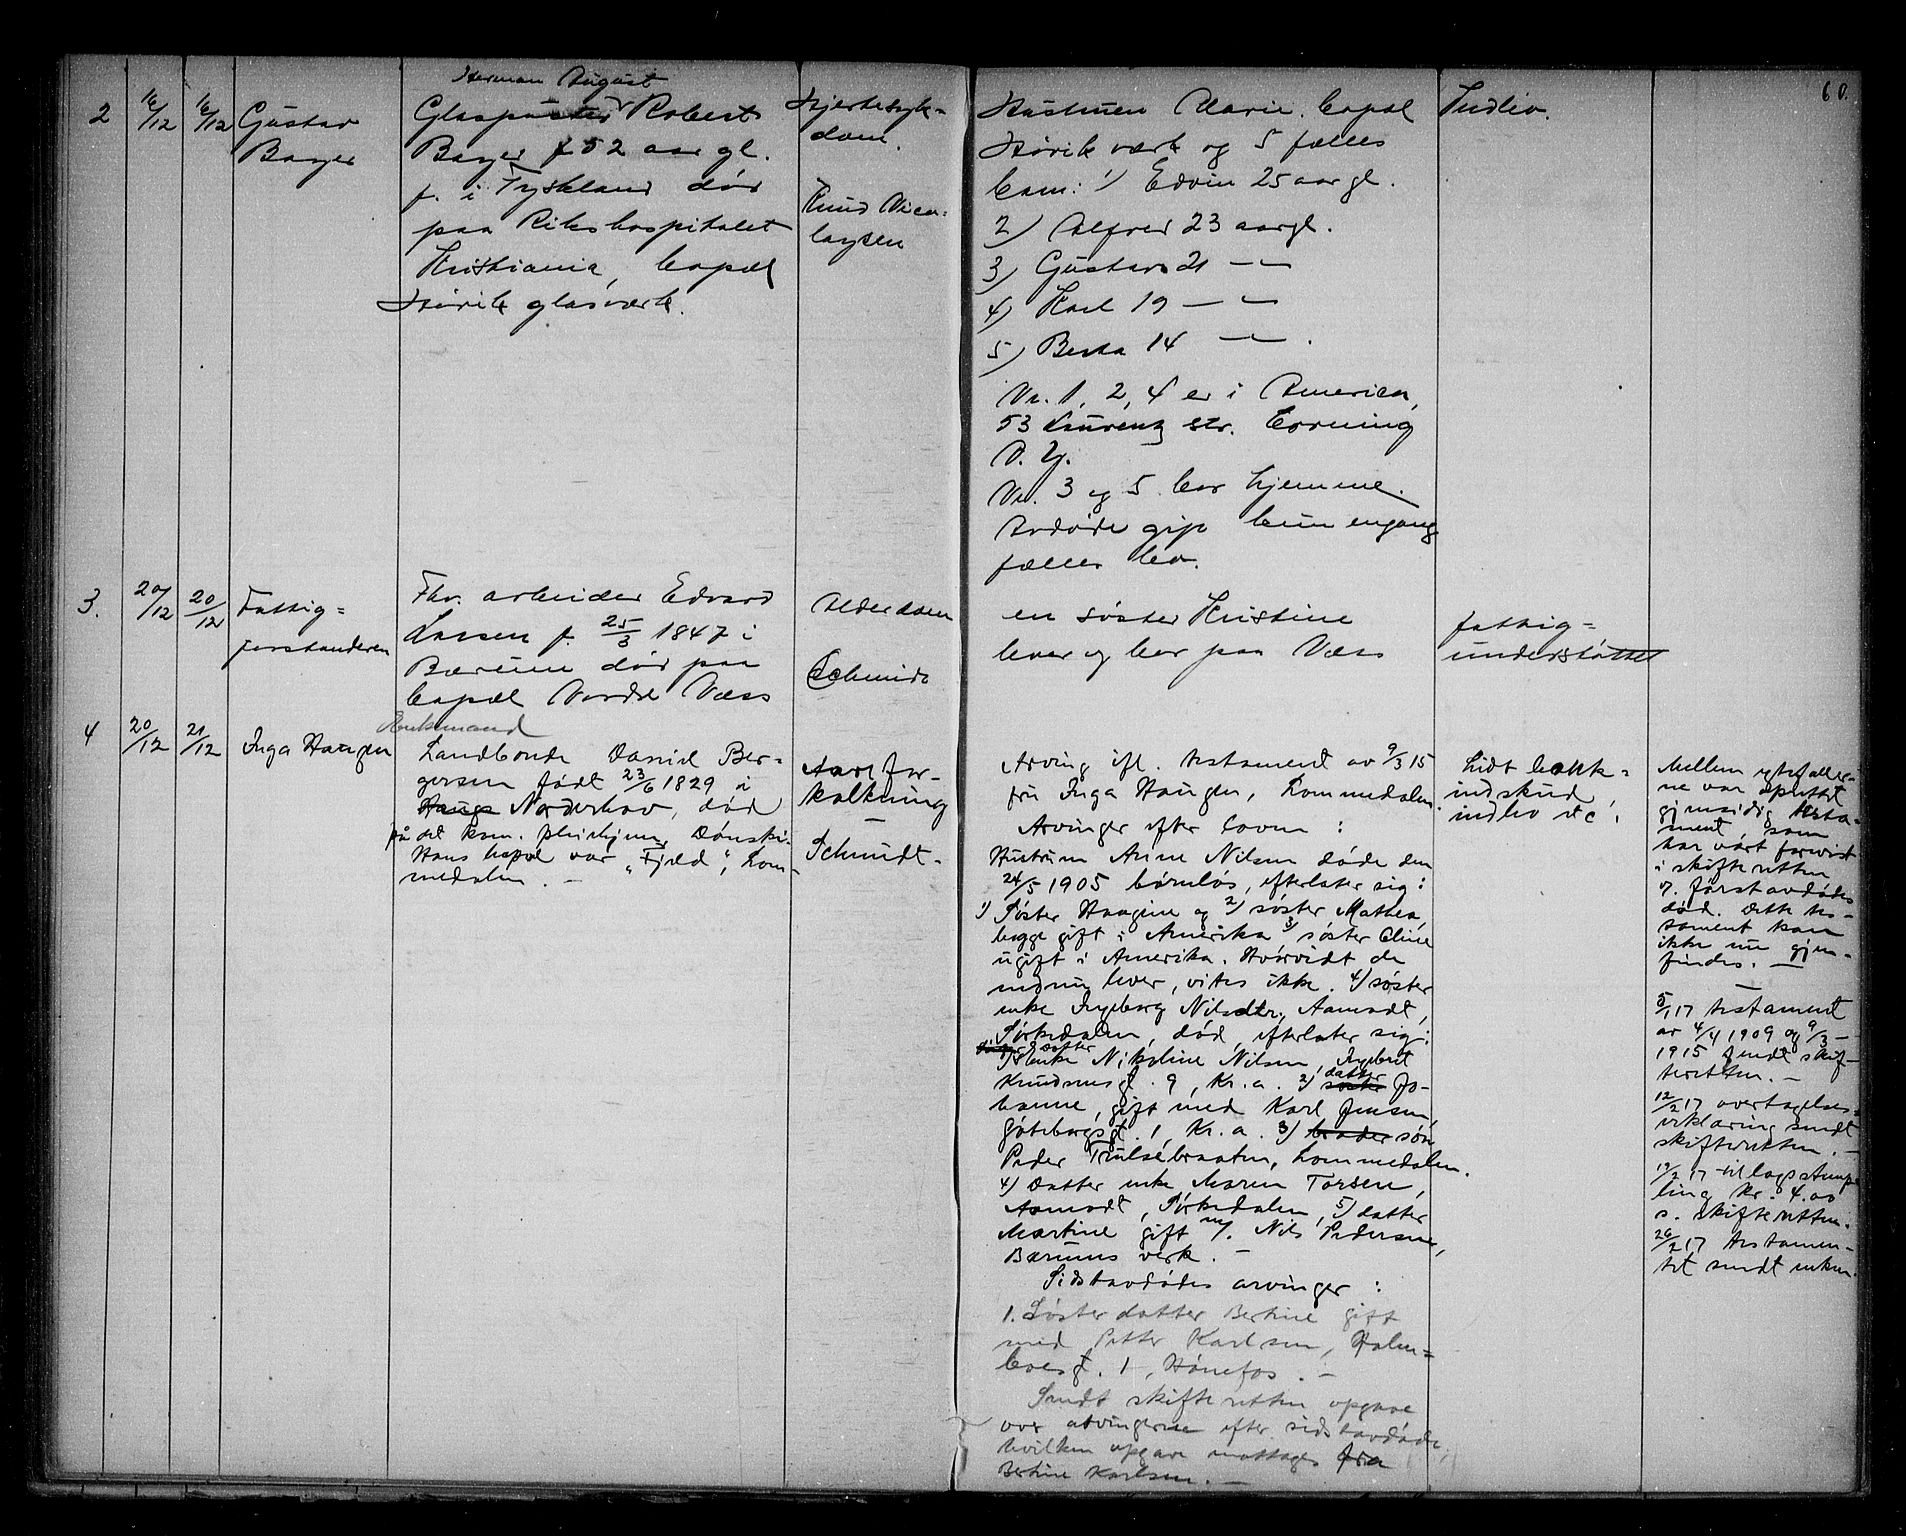 60.
2
16/12
16/12
Gustav
Bayer
Herman August
Glaspuster Robert
Bayer f 52 aar gl.
f. i Tyskland død
paa Rikshospitalet
Kristiania, bopæl
Høvik glasværk.
Hjertesyk=
dom.
Knud Nico-
laysen
Hustruen Marie. bopæl
Høvik værk og 5 fælles
barn: 1) Edvin 25 aar gl.
2) Alfred 23 aar gl.
3) Gustav 21 — „ —
4) Karl 19 — „ —
5) Berta 14 — „ — .
Nr. 1, 2, 4 er i America,
53 Laurenz str. Corning
N. Y.
Nr. 3 og 5 bor hjemme.
Avdøde gift kun engang
fælles bo.
Indbo.
3.
20/12
20/12
Fattig=
forstanderen
Fhv. arbeider Edvard
Larsen f. 25/3 1847 i
Bærum død paa
bopæl Nordre Næss
Alderdom
Schmidt
en søster Kristine
lever og bor paa Næss
fattig=
understøttet
4
20/12
21/12
Inga Haugen
Enkemand
Landbonde Daniel Ber=
gersen født 23/6 1829 i
Haugs Norderhov, død
på det kom. pleiehjem, Dønski.
Hans bopæl var „Fjeld", Lom-
medalen. —
Aarefor-
kalkning
—
Schmidt.
Arving ifl. testament av 9/3 15
fru Inga Haugen, Lommedalen.
Arvinger efter loven :
Hustruen Anne Nilsen døde den
24/5 1905 barnløs, efterlater sig:
1) Søster Haagine og 2) søster Mathea,
begge gift i Amerika 3) søster Eline
ugift i Amerika. Hvorvidt de
endnu lever, vites ikke. 4) søster
enke Ingeborg Nilsdtr., Aamodt,
Sørkedalen, død, efterlater sig:
1) datter Enke Nikoline Nilsen, Ingebret
Knudsensgt. 9, Kr.a. 2) søster datter Jo-
hanne, gift med Karl Jensen,
Gøteborgsgt. 1, Kr.a. 3) broder søn
Peder Trulsebraaten, Lommedalen.
4) Datter enke Maren Torsen,
Aamodt, Sørkedalen, 5) datter
Martine gift m/. Nils Pedersen,
Bærums verk. —
Sidstavdødes arvinger :
1. Søsterdatter Bertine gift
med Petter Karlsen, Holm=
boesgt. 1, Hønefos. —
Sendt skifteretten opgave
over arvingerne efter sidstavdøde,
hvilken opgave mottages fra
Bertine Karlsen. —
Lidt bank=
indskud,
indbo etc.
Mellem egtefæller-
ne var oprettet
gjensidig testa-
ment, som
har vært forevist
i skifteretten
v. førstavdødes
død. Dette tes-
tament kan
ikke nu gjen-
findes. —
5/1 17 testament
av 4/4 1909 og 9/3 —
1915 sendt skif-
teretten. —
12/2 17 overtagelses=
erklæring sendt
skifteretten. —
19/2 17 tillagsstemp-
ling kr. 4.00
s. skifteretten.
26/2 17 testamen-
tet sendt enken.